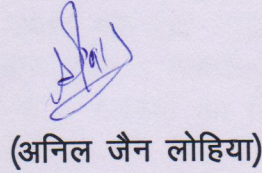 (अनिल जैन लोहिया)